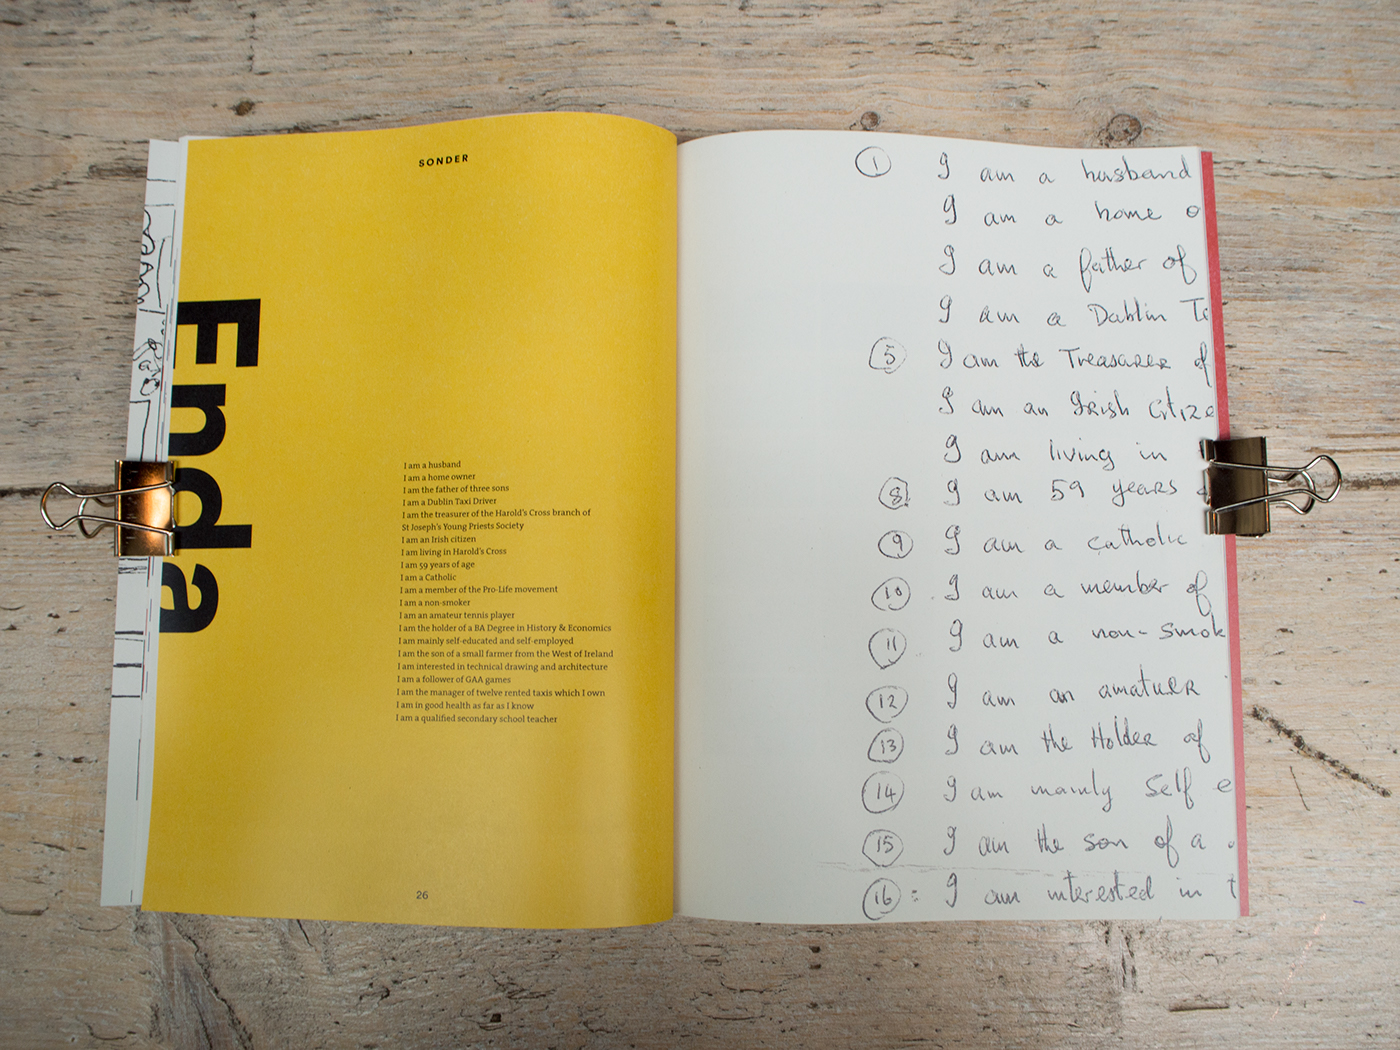 SONDER
Enda
I am a husband
I am a home owner
I am the father of three sons
I am a Dublin Taxi Driver
I am the treasurer of the Harold's Cross branch of
St Joseph's Young Priests Society
I am an Irish citizen
I am living in Harold's Cross
I am 59 years of age
I am a Catholic
I am a member of the Pro-Life movement
I am a non-smoker
I am an amateur tennis player
I am the holder of a BA Degree in History & Economics
I am mainly self-educated and self-employed
I am the son of a small farmer from the West of Ireland
I am interested in technical drawing and architecture
I am a follower of GAA games
I am the manager of twelve rented taxis which I own
I am in good health as far as I know
I am a qualified secondary school teacher
26
1 I am a husband
I am a home o
I am a father of
I am a Dublin T
5 I am the Treasurer of
I am an Irish Citize
I am living in
8 I am 59 years
9 I am a catholic
10 I am a member of
11 I am a non-smok
12 I am an amatuer
13 I am the Holder of
14 I am mainly self e
15 I am the son of a
16: I am interested in t